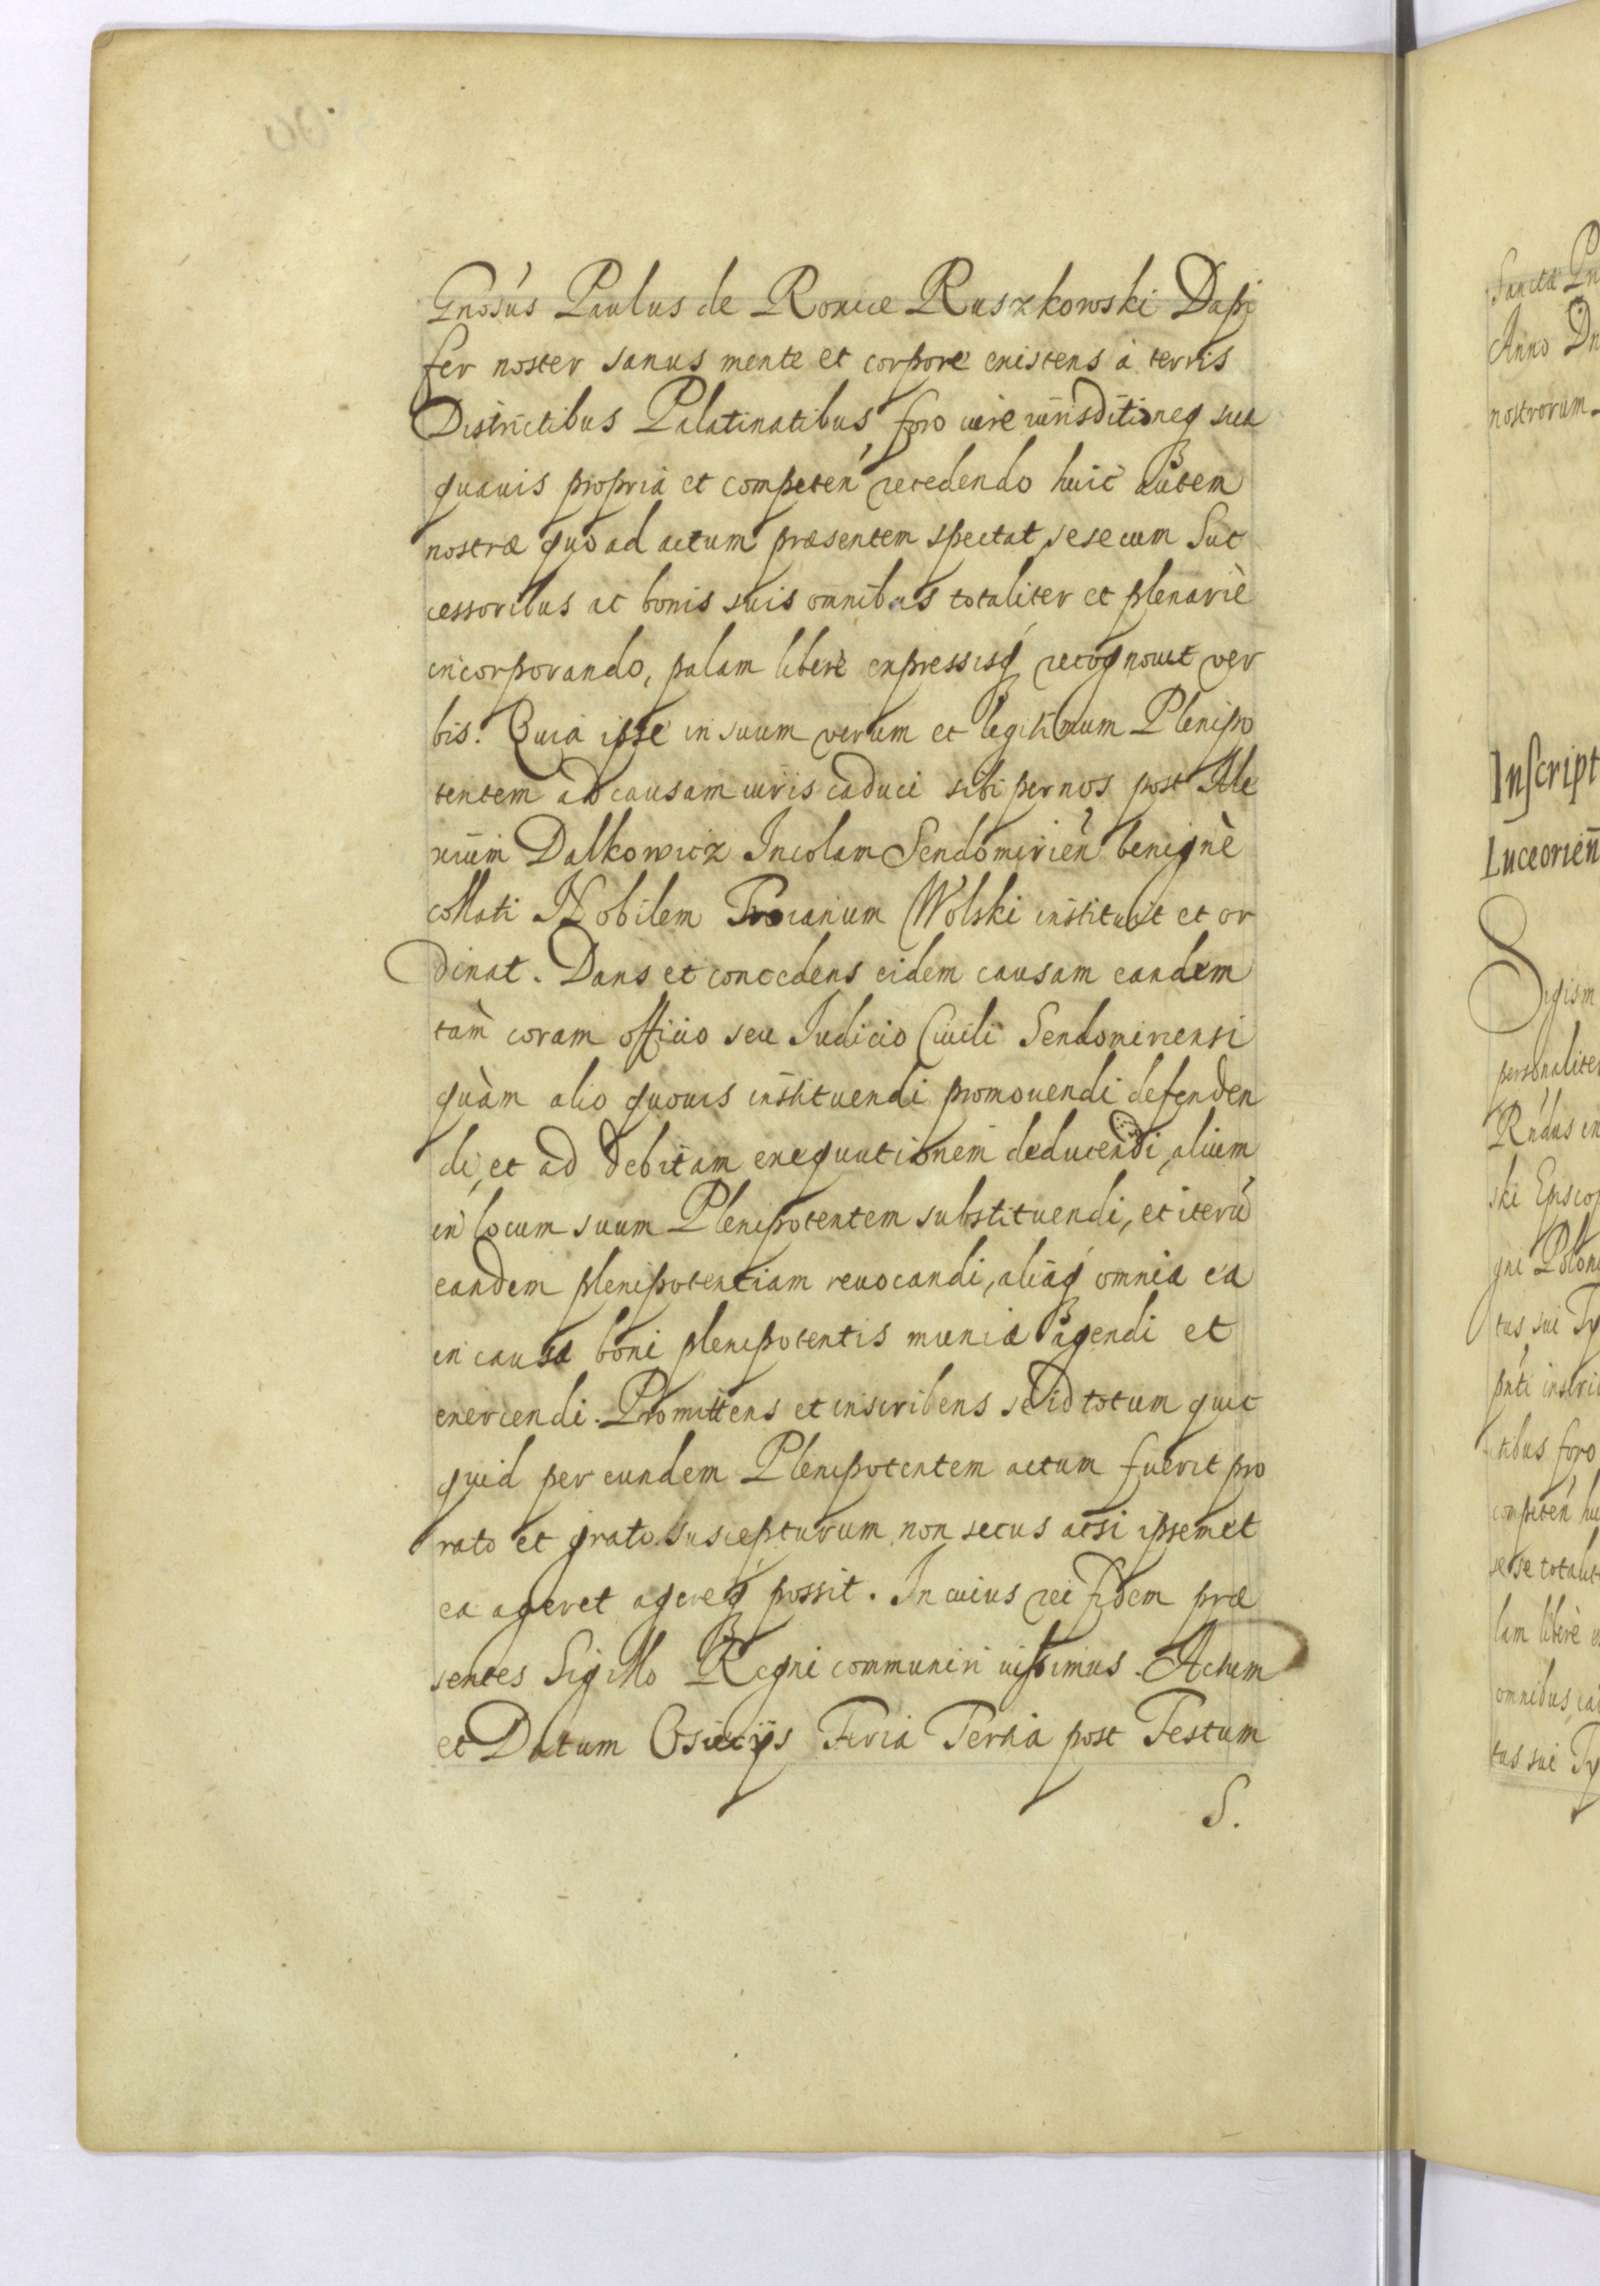 Gnosus Paulus de Romice Ruszkowski Dapi
fer noster sanus mente et corpore existens à terris
Districtibus Palatinatibus foro iure iurisditioneq sua
quauis propria et competeń recedendo huic autem
nostræ quo ad actum præsentem spectat sese cum Suc
cessoribus ac bonis suis omnibus totaliter et plenariè
incorporando, palam liberè expressisq recognouit ver
bis. Quia ipse in suum verum et legitimum Plenipo
tentem ad causam iuris caduci sibi per nos post Ale
xium Dalkowicz Incolam Sendomirień benignè
collati Nobilem Troianum Wolski instituit et or
dinat. Dans et concedens eidem causam eandem
tàm coram officio seu Iudicio Ciuili Sendomiriensi
quàm alio quouis instituendi promouendi defenden
di, et ad debitam exequutionem deducendi, alium
in locum suum Plenipotentem substituendi, et iterũ
eandem plenipotentiam reuocandi, aliaq omnia ea
in causa boni plenipotentis munia agendi et
exercendi. Promittens et inscribens se id totum quic
quid per eundem Plenipotentem actum fuerit pro
rato et grato suscepturum non secus acsi ipsemet
ea ageret agereq possit. In cuius rei fidem præ
sentes Sigillo Regni communiri iussimus. Actum
et Datum Osiecijs Feria Tertia post Festum
S.
Sancta
Anno
nostrorum
Inscript
Luceorień
Sigism
personaliter
Rńdus
ski Episcop
gni Poloni
tus sui Ty
pńti inscri
ctibus foro
competeń hu
sese totalit
lam liberè
omnibus
tus sui Ty